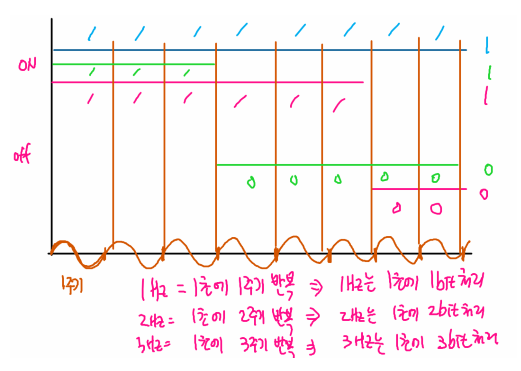 / / / / / / / / 1
ON
/ / / 1
/ / / / / / 1
off
0 0 0 0 0 0
0 0 0
1주기
1Hz = 1초에 1주기 반복 ⇒ 1Hz는 1초에 1bit 처리
2Hz = 1초에 2주기 반복 ⇒ 2Hz는 1초에 2bit 처리
3Hz = 1초에 3주기 반복 ⇒ 3Hz는 1초에 3bit 처리